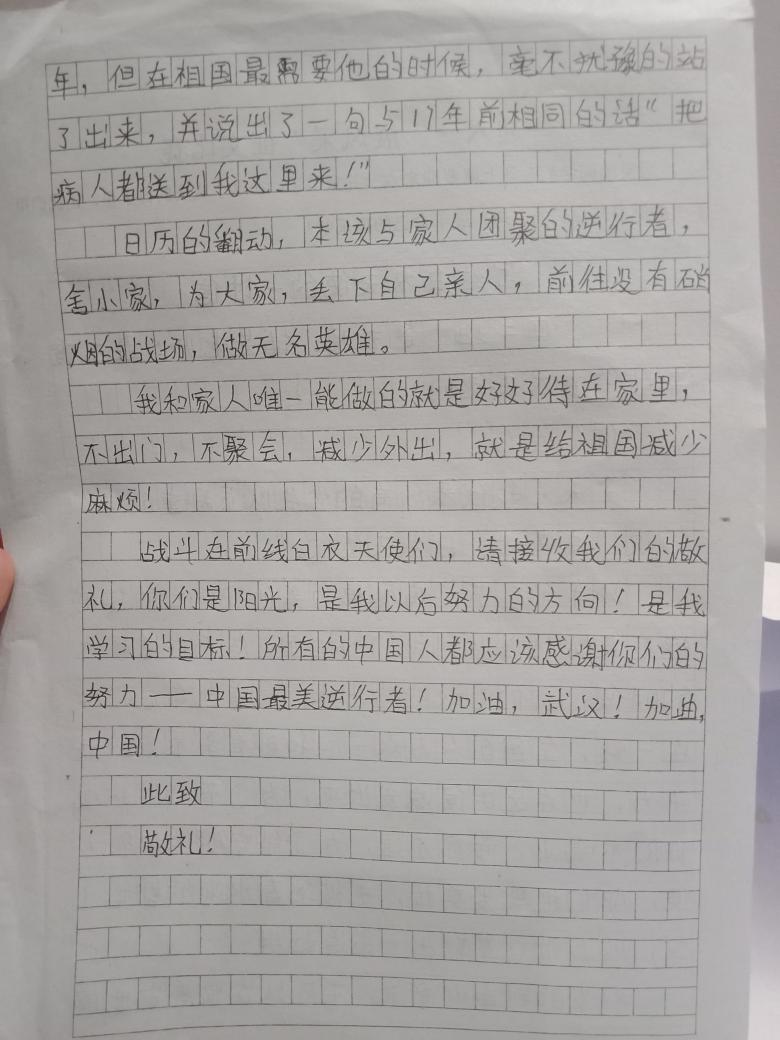 年，但在祖国最需要他的时候，毫不犹豫的站
了出来，并说出了一句与17年前相同的话“把
病人都送到我这里来！”
日历的翻动，本该与家人团聚的逆行者，
舍小家，为大家，丢下自己亲人，前往没有硝
烟的战场，做无名英雄。
我和家人唯一能做的就是好好待在家里，
不出门，不聚会，减少外出，就是给祖国减少
麻烦！
战斗在前线白衣天使们，请接收我们的敬
礼，你们是阳光，是我以后努力的方向！是我
学习的目标！所有的中国人都应该感谢你们的
努力——中国最美逆行者！加油，武汉！加油，
中国！
此致
敬礼！